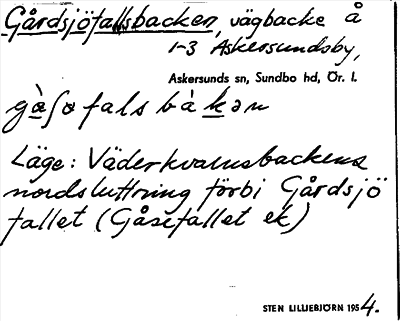 Gårdsjöfallsbacken, vägbacke å
1-3 Askersundsby,
Askersunds sn, Sundbo hd, Ör. l.
gàʃofals bàkən
Läge: Väderkvarnsbackens
nordsluttning förbi Gårdsjö
fallet (Gåsefallet ek)
STEN LILLIEBJÖRN 1954.